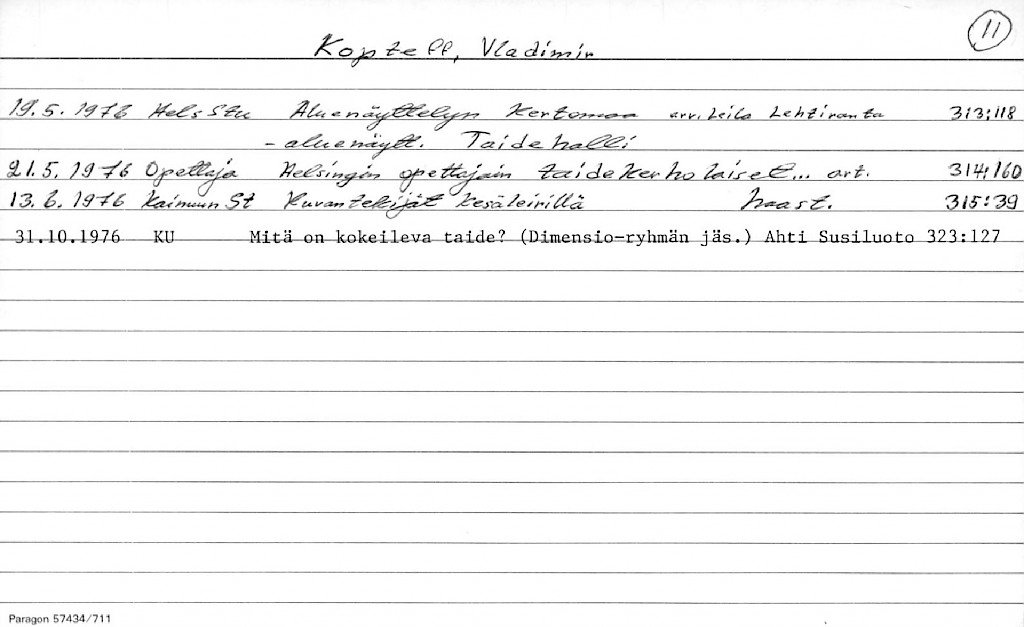 11
Kopteff, Vladimir
19.5.1976 Hels Stu Aluenäyttelyn kertomaa arv. Leila Lehtiranta 313:118
- aluenäytt. Taidehalli
21.5.1976 Opettaja Helsingin opettajain taidekerholaiset... art. 314:160
13.6.1976 Kainuun St Kuvantekijät kesäleirillä haast. 315:39
31.10.1976 KU Mitä on kokeileva taide? (Dimensio-ryhmän jäs.) Ahti Susiluoto 323:127
Paragon 57434/711